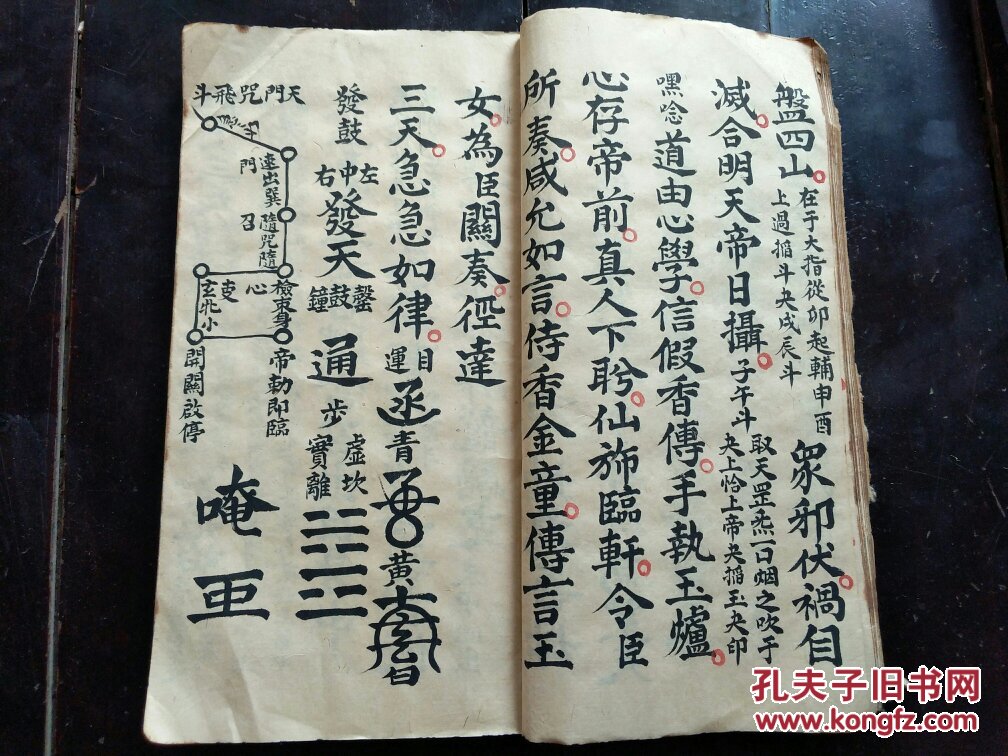 盤四山
在于大指從卯起輔申酉
上過搯斗央戌辰斗
眾邪伏禍自
滅合明天帝日攝
子午斗
取天罡炁一口烟之吹于
央上恰上帝央搯玉央印
嘿念
道由心學信假香傳手執玉爐
心存帝前真人下盻仙斾臨軒令臣
所奏咸允如言侍香金童傳言玉
女為臣關奏徑達
三天急急如律
目
運
青
黃
白
發鼓
左中右
發天
罄鼓鐘
通
步
虛坎
實離
天門咒飛斗
速出巽
門
隨咒隨
召
檢束身
心
玄北小
帝勅即臨
開關啟停
唵
孔夫子旧书网
www.kongfz.com